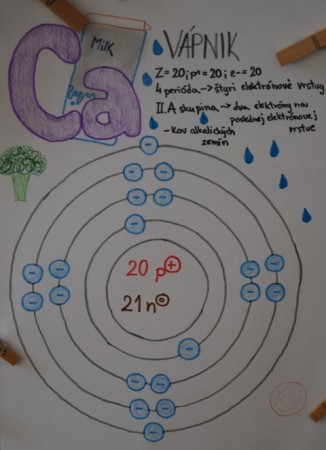 Ca
MilK
VÁPNIK
Z = 20; p+ = 20; e- = 20
4 perióda -> štyri elektrónové vrstvy
II.A skupina -> dva elektróny na
poslednej elektrónovej
vrstve
- Kov alkalických
zemín
20 p+
21 n0